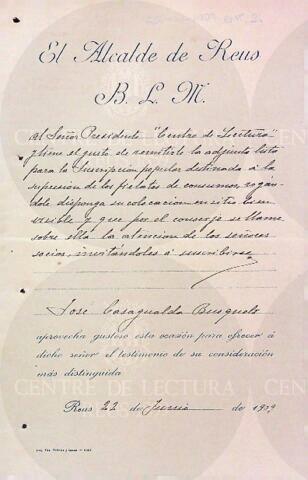 El Alcalde de Reus
B. L. M.
al Señor Presidente "Centro de Lectura"
y tiene el gusto de remitirle la adjunta lista
para la Suscripción popular destinada á la
supresión de los fielatos de consumos, rogán-
dole disponga su colocación en sitio
visible y que por el conserje se llame
sobre ella la atención de los señores
socios, invitándoles á suscribirse
José Casagualda Busquets
aprovecha gustoso esta ocasión para ofrecer á
dicho señor el testimonio de su consideración
más distinguida
Reus 22 de Junio de 1909
CENTRE DE LECTURA